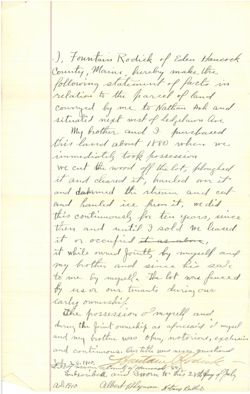 I, Fountain Rodick of Eden Hancock
County, Maine, hereby make the
following statement of facts in
relation to the parcel of land
conveyed by me to Nathan Ash and
situated next west of Ledgelawn Ave
My brother and I purchased
this land about 1880 when we
immediately took possession
we cut the wood off the lot, ploughed
it and cleared it, hauled our
and dammed the stream and cut
and hauled ice from it, we did
this continuously for ten years, since
then and until I sold we leased
it or occupied it as above,
it while owned jointly by myself and
my brother and since his sale
to me by myself. The lot was fenced
by us or our tenants during our
early ownership.
The possession of myself and,
during the joint ownership as aforesaid of myself
and my brother was open, notorious, exclusive
and continuous, our title was never questioned
Subscribed and sworn to this 26th day of July
A.D. 1910.